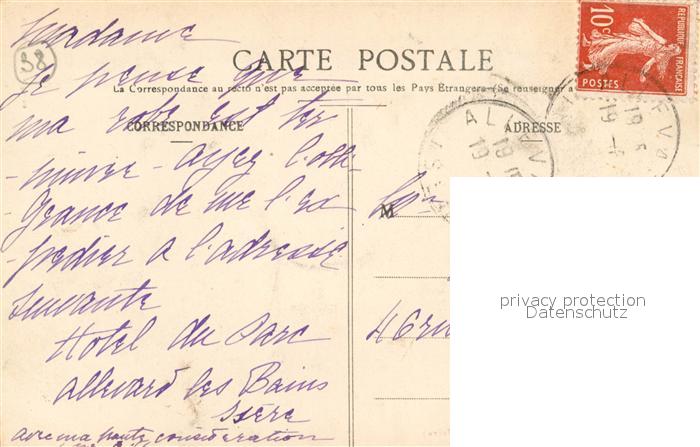 Madame
38
CARTE POSTALE
Je pense que
La Correspondance au recto n'est pas acceptée par tous les Pays Etrangers (Se renseigner a
ma robe est ter
CORRESPONDANCE
minée - ayez l'obli
geance de me l'ex
pedier a l'adresse
suivante
Hotel du Parc
allevard les Bains
Isère
avec ma haute considération
REPUBLIQUE FRANÇAISE
10c
POSTES
ADRESSE
ALLEV
19
M
46 ru
privacy protection
Datenschutz